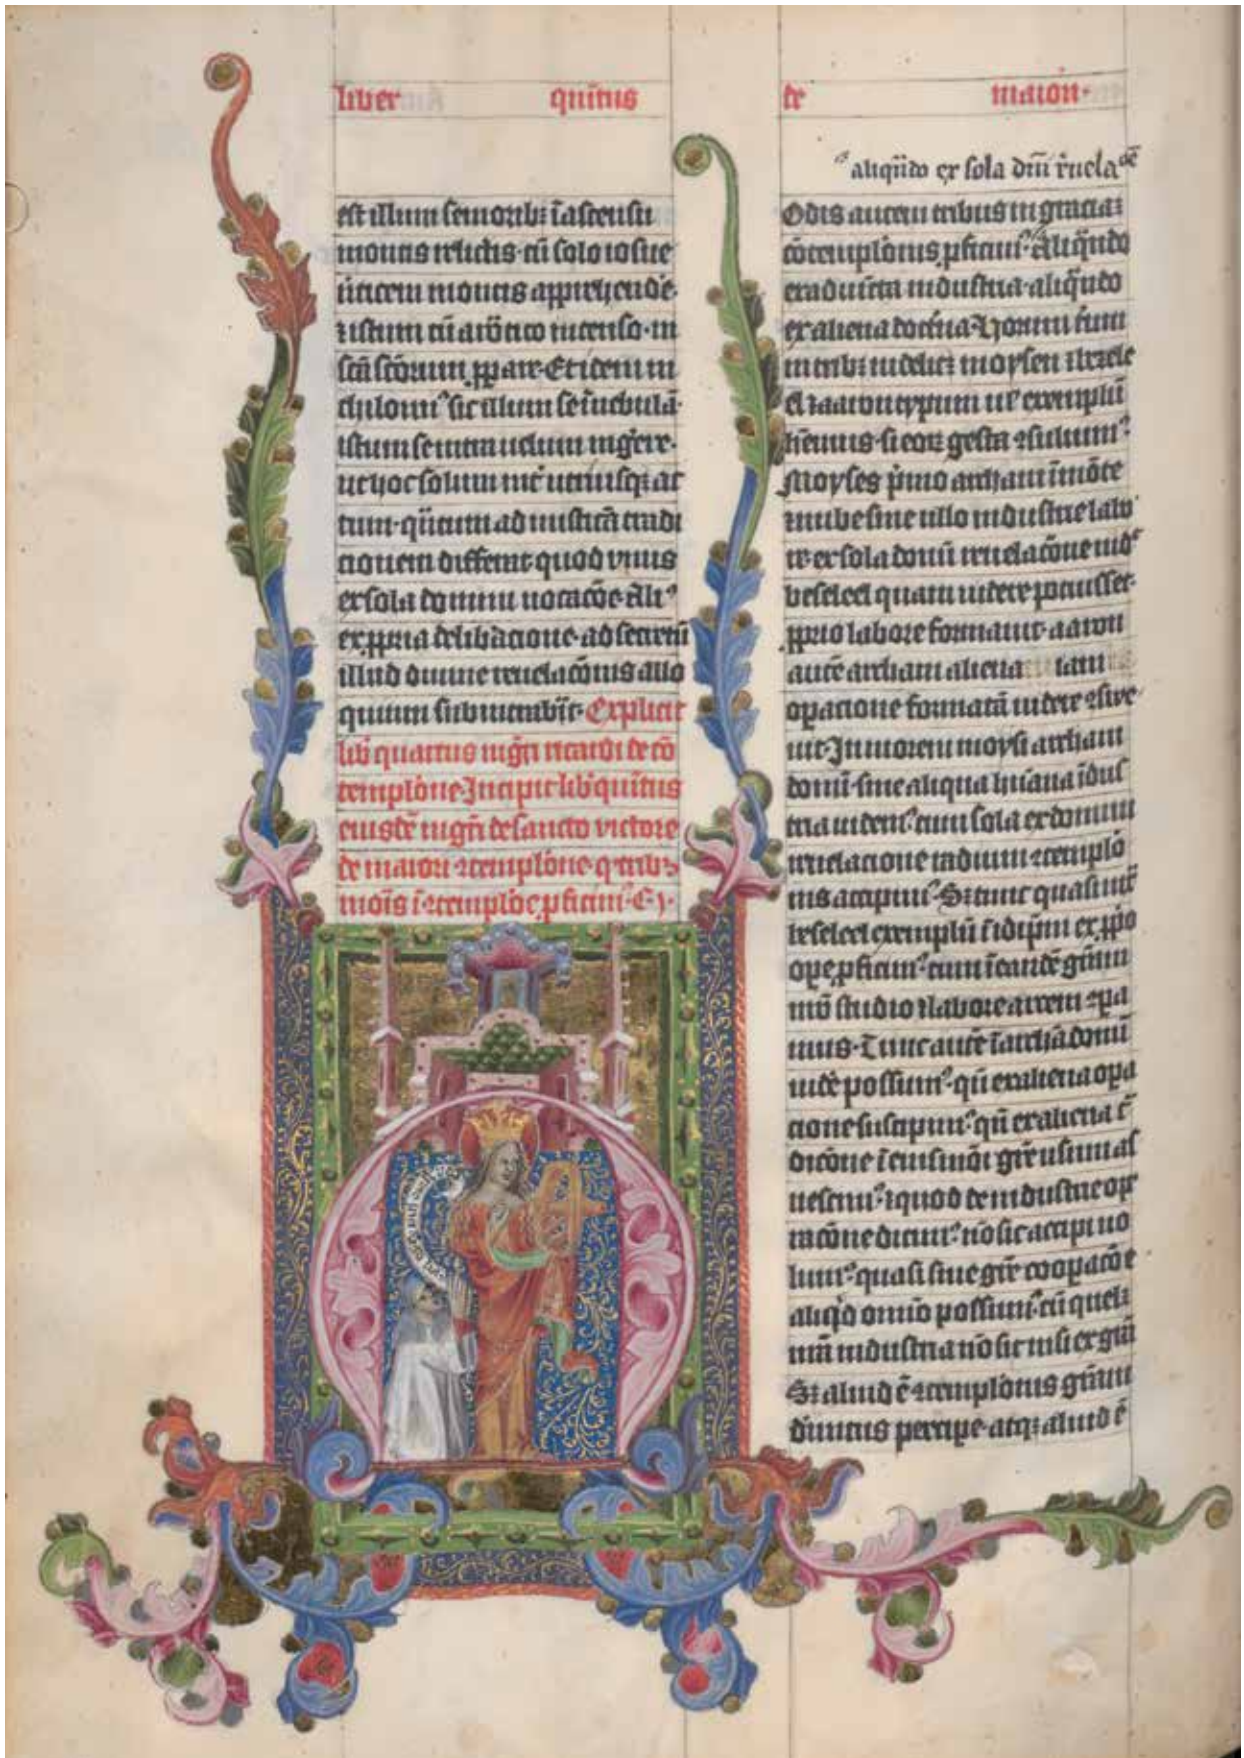 liber quintus de maiori
aliqñdo ex sola dñi r̃uela
est illum seniorib; ĩ ascensu
montis relictis· cũ solo iosue
uerticem montis app̃rehendẽ·
⁊ istum cũ arõtico incenso· in
scã scõrum ꝑpare· Et idem in
illum se ĩ nebulã·
istum se intra uelum ingere·
ut hoc solum int̃ utriusq; ac
tum· q̃ntum ad misticã tradi
tionem differat quod vnus
ex sola domini uocacõe· Aliꝰ
ex ꝓpria delibacione· ad secretũ
illud diuine reuelacõnis allo
quium subintrabũt· Explicit
lib̃ quartus mgr̃i ricardi de cõ
templõne· Incipit lib̃ quĩtus
eiusdẽ mgr̃i de sancto victore
de maiori ꝯtemplõne· q̃ trib;
mõis ĩ ꝯtemplõe ꝓficimꝰ· C j·
Odis autem tribus in gracia;
cõtemplõnis ꝓficimꝰ· Aliq̃ndo
industria· aliq̃ndo
ex aliena doct̃na· Horum t̃ium
in trib; uidelic; moysen ⁊ besele
el ⁊ aaron typum ul' exemplũ
hẽmus· si eor; gesta ꝯsulimꝰ·
Moyses p̃mo archam ĩ mõte
⁊ nube sine ullo industrie labo
re· ex sola domi reuelacõne uid'
beseleel quam uidere potuisset·
ꝓprio labore formauit· aaron
autẽ archam aliena iam
opacione formatã uidere ꝯsue
uit· In morem moysi archam
domĩ· sine aliqua hũana ĩdus
tria uidemꝰ· cum sola ex domini
reuelacione radium ꝯtemplõ
nis accipimꝰ· S; tunc quasi iux̃
beseleel exemplũ ĩ idip̃m ex ꝓp̃o
ope ꝓficimꝰ· cum ĩ eandẽ gr̃am
nr̃o studio ⁊ labore artem ꝯpa
mus· Tunc autẽ ĩ archã domĩ
uidẽ possumꝰ· qñ ex aliena opa
cione suscipimꝰ· qñ ex aliena t̃
dicõne ĩ eiusmõi gr̃e usum as
uescimꝰ· ⁊ quod de industrie ope
racõne dicimꝰ· nõ sic accipi uo
lumꝰ· quasi sine gr̃e coopacõe
aliq̃d om̃io possimꝰ· cũ quel;
nr̃a industria nõ sit nisi ex gr̃a
S; aliud ẽ ꝯtemplõnis gr̃am
diuinitus percipe· atq; aliud ẽ